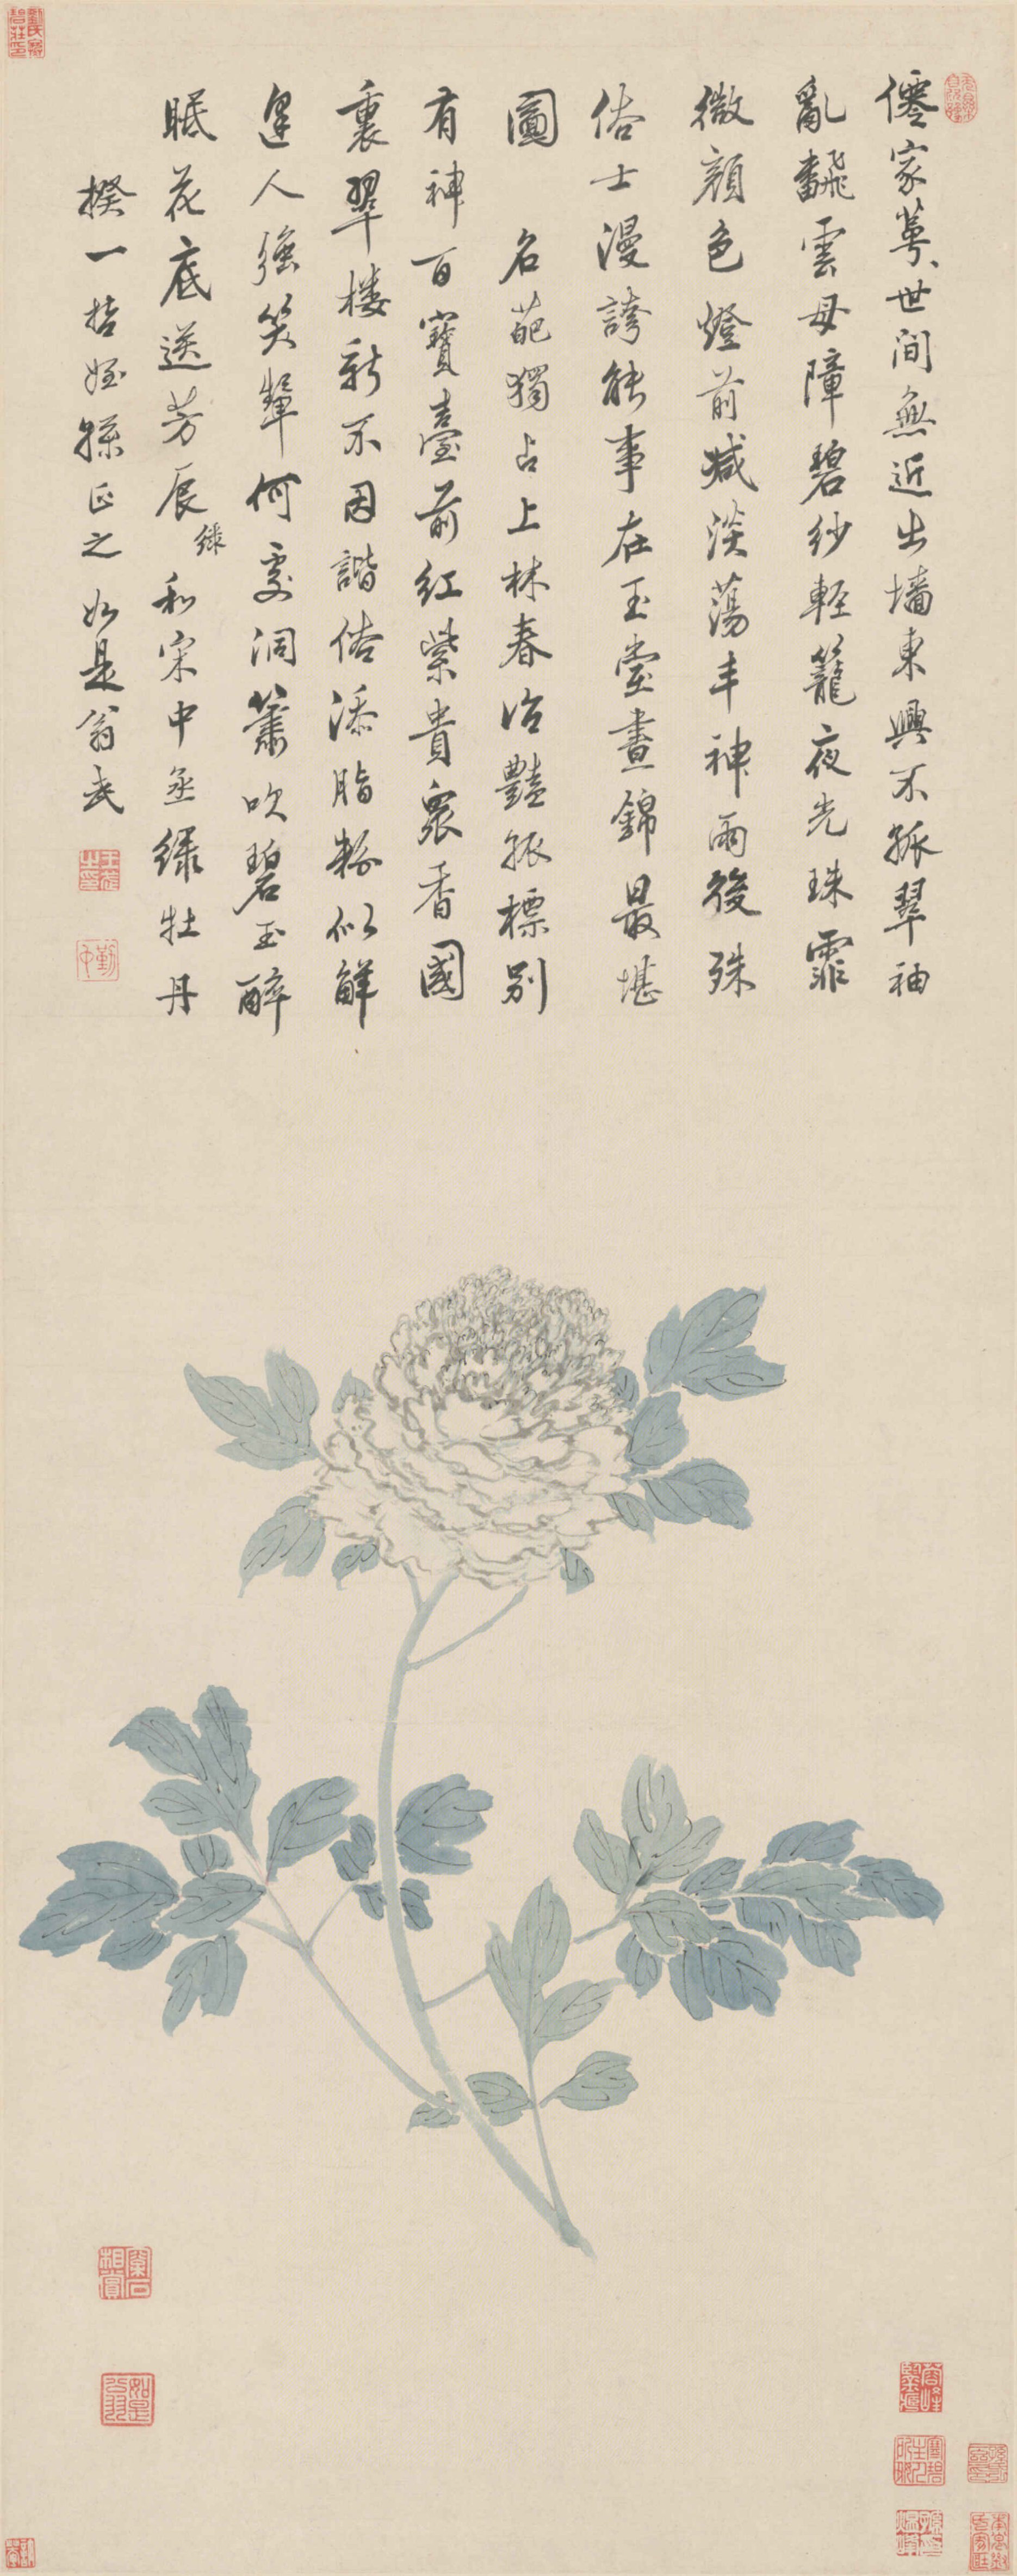 僊家萼、世间無近出墻東興不孤翠袖
亂飜雲母障碧紗輕籠夜光珠霏
微顔色燈前減淡蕩丰神雨後殊
俗士漫誇能事在玉堂晝錦最堪
圖 名葩獨占上林春冶豔孤標別
有神百寶臺前紅紫貴衆香國
裏翠樓新不因諧俗添脂粉似解
逢人強笑顰何處洞簫吹碧玉醉
眠花底送芳辰 緑 和宋中丞緑牡丹
揆一哲姪孫正之 如是翁武
王武之印
勤中